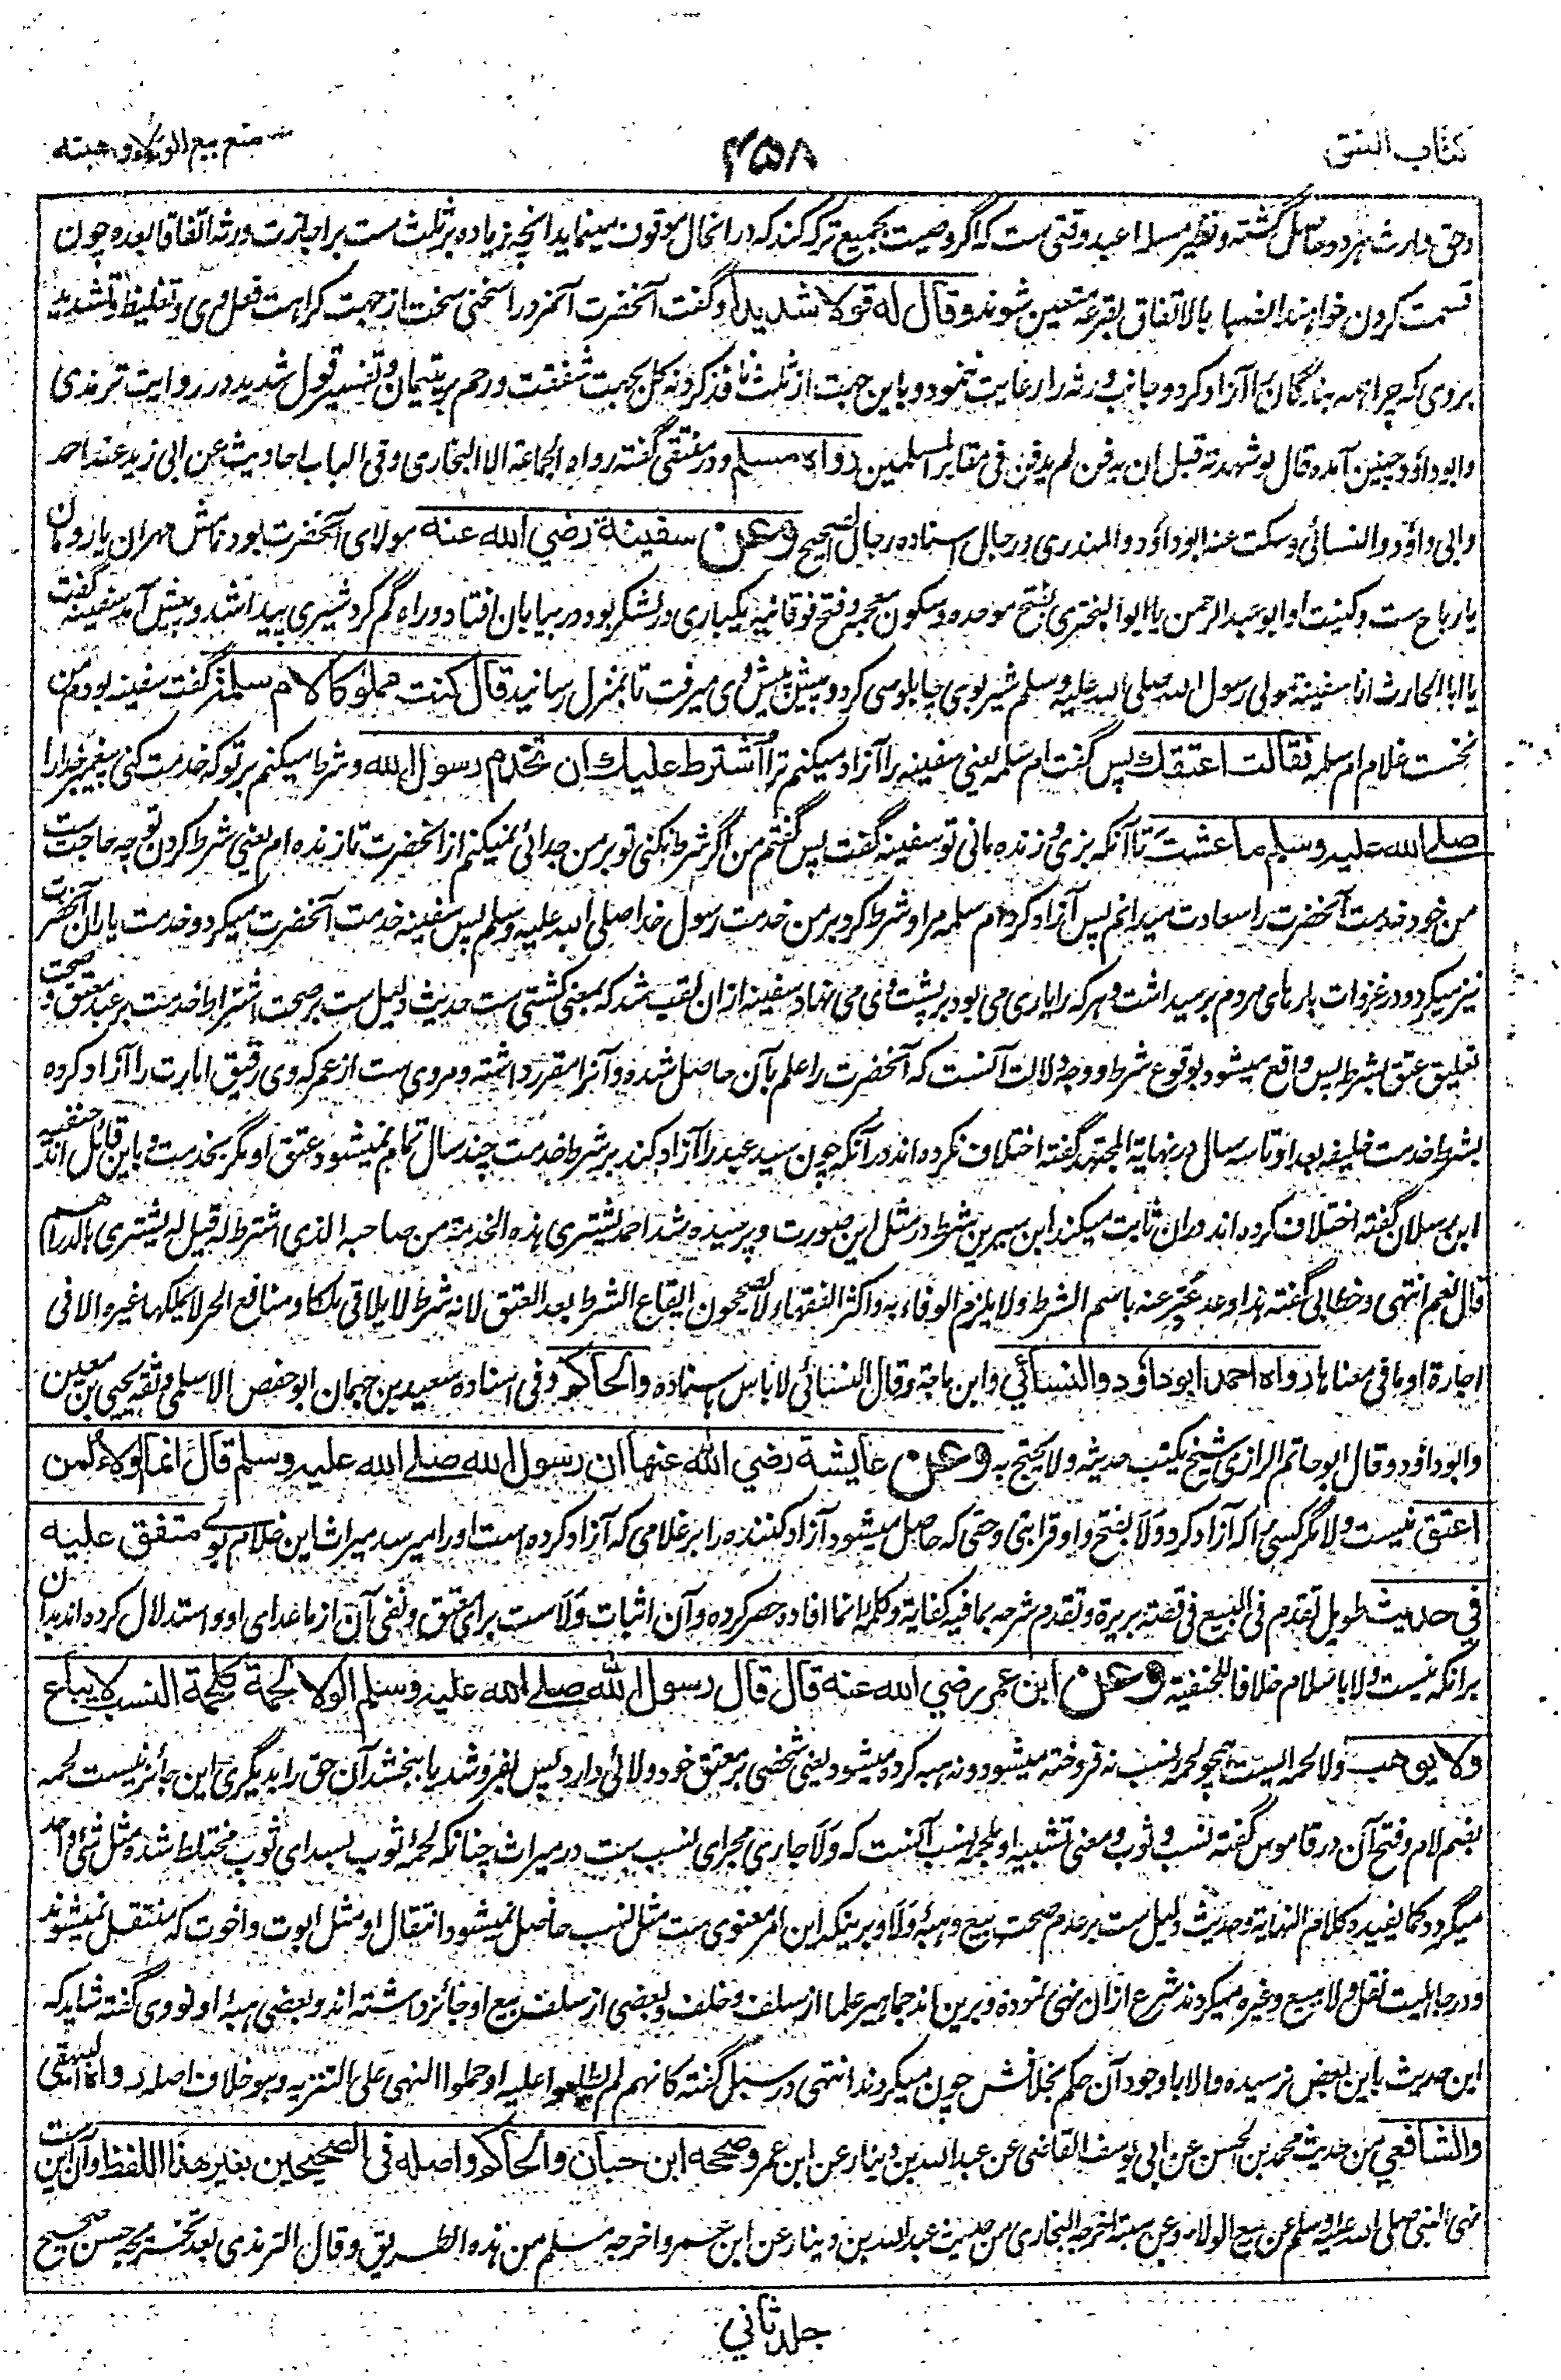 کتاب العتق
۴۵۸
منع بیع الولاء و هبته
وحق وارث هر دو حاصل گشته و نظیر مسئله اعبد وقتی ست که اگر وصیت بجمیع ترکه کند که در انحال موقوف مینماید انچه زیاده بر ثلث ست بر اجازت ورثه اتفاقا بعده چون
قسمت کردن خواهند انصبا بالاتفاق بقرعه متعین شوند وقال له قولا شدیدا وگفت آنحضرت آنمرد را سخنی سخت از جهت کراهت فعل وی و تغلیظ و تشدید
بروی که چرا همه بندگان را آزاد کرد و جانب ورثه را رعایت ننمود و باین جهت از ثلث نافذ کرد نه کل بجهت شفقت ورحم بر یتیمان و تفسیر قول شدید در روایت ترمذی
وابو داؤد چنین آمده قال لو شهدته قبل ان یدفن لم یدفن فی مقابر المسلمین رواه مسلم و در منتقی گفته رواه الجماعة الا البخاری وفی الباب احادیث عن ابی زید عند احمد
وابی داؤد والنسائی وسکت عنه ابو داؤد والمنذری ورجال اسناده رجال الصحیح وعن سفینة رضي الله عنه مولای آنحضرت بود نامش مهران یا رومان
یا رباح ست وکنیت او ابو عبد الرحمن یا ابو البختری بفتح موحده وسکون معجمه وفتح فوقانیه یکباری در لشکر بود در بیابان افتاد و راه گم کرد شیری پیدا شد و پیش آمد سفینه گفت
یا ابا الحارث انا سفینة مولی رسول الله صلی الله علیه وسلم شیر بوی چاپلوسی کرد و پیش پیش وی میرفت تا بمنزل رسانید قال کنت مملوکا لام سلمة گفت سفینه بودم من
نخست غلام ام سلمه فقالت اعتقك پس گفت ام سلمه یعنی سفینه را آزاد میکنم ترا اشترط علیك ان تخدم رسول الله وشرط میکنم بر تو که خدمت کنی پیغمبر خدا را
صلی الله علیه وسلم ما عشت تا آنکه بزی و زنده مانی تو سفینه گفت پس گفتم من اگر شرط نکنی تو بر من جدائی نمیکنم از آنحضرت تا زنده ام یعنی شرط کردن تو چه حاجت ست
من خود خدمت آنحضرت را سعادت میدانم پس آزاد کرد ام سلمه مرا و شرط کرد بر من خدمت رسول خدا صلی الله علیه وسلم پس سفینه خدمت آنحضرت میکرد و خدمت یاران آنحضرت
نیز میکرد و در غزوات بارهای مردم بر میداشت و هر که را باری می بود بر پشت وی می نهاد سفینه ازان لقب شد که بمعنی کشتی ست حدیث دلیل ست بر صحت اشتراط خدمت بر عبد معتق و صحت
تعلیق عتق بشرط پس واقع میشود بوقوع شرط و وجه دلالت آنست که آنحضرت را علم بآن حاصل شده و آنرا مقرر داشته و مروی ست از عمر که وی رقیق امارت را آزاد کرده
بشرط خدمت خلیفه بعد او تا سه سال در نهایة المجتهد گفته اختلاف نکرده اند در آنکه چون سید عبد را آزاد کند بر شرط خدمت چند سال تمام نمیشود عتق او مگر بخدمت و باین قائل اند حنفیه
ابن رسلان گفته اختلاف کرده اند دران ثابت میکند ابن سیرین شرط در مثل این صورت و پرسیده شد احمد یشتری هذه الخدمة من صاحبه الذی اشترط له قیل له یشتری بالدراهم
قال نعم انتهی وخطابی گفته هذا وعد عبر عنه باسم الشرط ولا یلزم الوفاء به واکثر الفقهاء لا یصححون ایقاع الشرط بعد العتق لانه شرط لا یلاقی ملکا ومنافع الحر لا یملکها غیره الا فی
اجارة او ما فی معناها رواه احمد ابو داؤد والنسائي وابن ماجة وقال النسائی لا باس باسناده والحاکم وفی اسناده سعید بن جمهان ابو حفص الاسلمی وثقه یحیی بن معین
وابو داؤد وقال ابو حاتم الرازی شیخ یکتب حدیثه ولا یحتج به وعن عایشة رضي الله عنها ان رسول الله صلی الله علیه وسلم قال انما الولاء لمن
اعتق نیست ولا مگر کسی را که آزاد کرد و ولا بفتح واو قرابتی وحقی که حاصل میشود آزاد کننده را بر غلامی که آزاد کرده است او را میرسد میراث این غلام بوی متفق علیه
في حدیث طویل تقدم فی البیع فی قصة بریرة وتقدم شرحه بما فیه کفایة وکلمه انما افاده حصر کرده و آن اثبات ولا ست برای معتق و نفی آن از ما عدای او و استدلال کرده اند بدان
برانکه نیست ولا باسلام خلافا للحنفیة وعن ابن عمر رضي الله عنه قال قال رسول الله صلی الله علیه وسلم الولا لحمة کلحمة النسب لا یباع
ولا یوهب ولا لحمه ایست همچو لحمه نسب نه فروخته میشود و نه هبه کرده میشود یعنی شخصی بر معتق خود ولائی دارد پس بفروشد یا ببخشد آن حق را بدیگری این جائز نیست لحمه
بضم لام وفتح آن در قاموس گفته نسب و ثوب و معنی تشبیه او بلحمه نسب آنست که ولا جاری مجرای نسب ست در میراث چنانکه لحمه ثوب بسدای ثوب مختلط شده مثل شئی واحد
میگردد کما یفیده کلام النهایة وحدیث دلیل ست بر عدم صحت بیع و هبه ولا و برینکه این امر معنوی ست مثل نسب حاصل نمیشود انتقال او مثل ابوت و اخوت که منتقل نمیشوند
و در جاهلیت نقل ولا به بیع وغیره میکردند شرع ازان نهی نموده و برین اند جماهیر علما از سلف و خلف و بعضی از سلف بیع او جائز داشته اند و بعضی هبه او نووی گفته شاید که
این حدیث باین بعض نرسیده والا با وجود آن حکم بخلافش چون میکردند انتهی در سبل گفته کانهم لم یطلعوا علیه او حملوا النهی علی التنزیه وهو خلاف اصله رواه البیهقی
والشافعي من حدیث محمد بن الحسن عن ابی یوسف القاضی عن عبد الله بن دینار عن ابن عمر وصححه ابن حبان والحاکم واصله فی الصحیحین بغیر هذا اللفظ وآن این ست
نهی النبی صلی الله علیه وسلم عن بیع الولاء وعن هبته اخرجه البخاری من حدیث عبد الله بن دینار عن ابن عمر واخرجه مسلم من هذه الطریق وقال الترمذی بعد تخریجه حسن صحیح
جلد ثاني